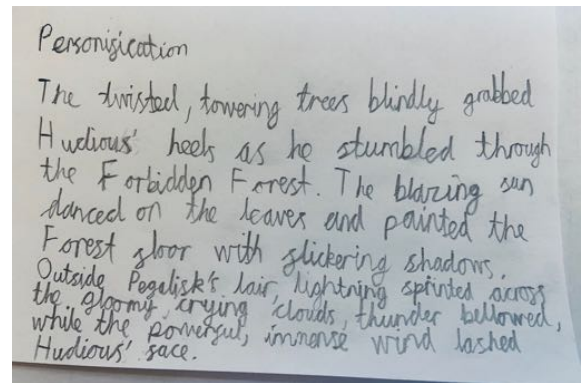 Personification
The twisted, towering trees blindly grabbed
Hudious' heels as he stumbled through
the Forbidden Forest. The blazing sun
danced on the leaves and painted the
Forest floor with flickering shadows.
Outside Pegalisk's lair, lightning sprinted across
the gloomy, crying clouds, thunder bellowed,
while the powerful, immense wind lashed
Hudious' face.